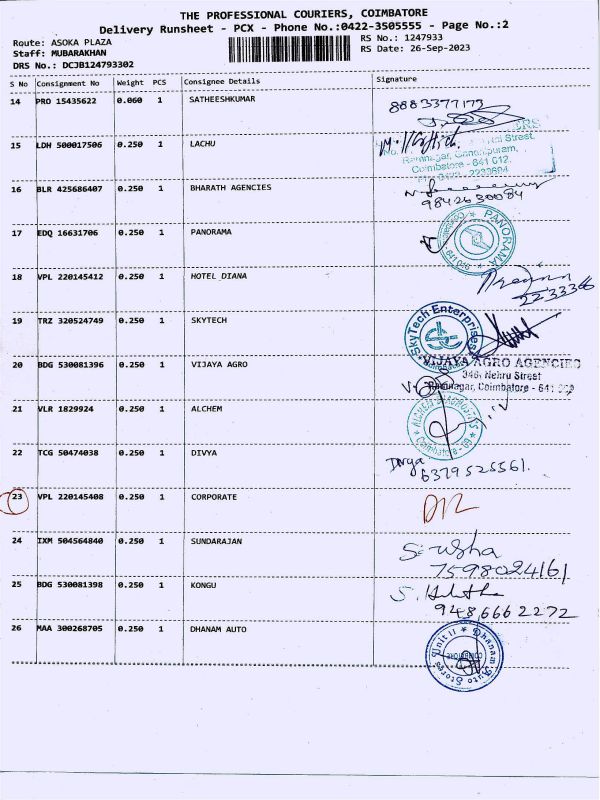 THE PROFESSIONAL COURIERS, COIMBATORE
Delivery Runsheet - PCX - Phone No.:0422-3505555 - Page No.:2
Route: ASOKA PLAZA
RS No.: 1247933
Staff: MUBARAKHAN
RS Date: 26-Sep-2023
DRS No.: DCJB124793302
S No Consignment No Weight PCS Consignee Details Signature
14 PRO 15435622 0.060 1 SATHEESHKUMAR 8883377173
15 LDH 500017506 0.250 1 LACHU
Street,
Ramnagar,
Coimbatore - 641 012.
16 BLR 425686407 0.250 1 BHARATH AGENCIES
9842630084
17 EDQ 16631706 0.250 1 PANORAMA
PANORAMA
18 VPL 220145412 0.250 1 HOTEL DIANA
2233366
19 TRZ 320524749 0.250 1 SKYTECH
SkyTech Enterprises
20 BDG 530081396 0.250 1 VIJAYA AGRO
VIJAYA AGRO AGENCIES
346, Nehru Street
Ramnagar, Coimbatore - 641
21 VLR 1829924 0.250 1 ALCHEM
ALCHEM
Coimbatore - 09
22 TCG 50474038 0.250 1 DIVYA
Divya
6379525561.
23 VPL 220145408 0.250 1 CORPORATE
24 IXM 504564840 0.250 1 SUNDARAJAN
S. usha
7598024161
25 BDG 530081398 0.250 1 KONGU
9486662272
26 MAA 300268705 0.250 1 DHANAM AUTO
Unit II * Dhanam Auto Stores
COIMBATORE